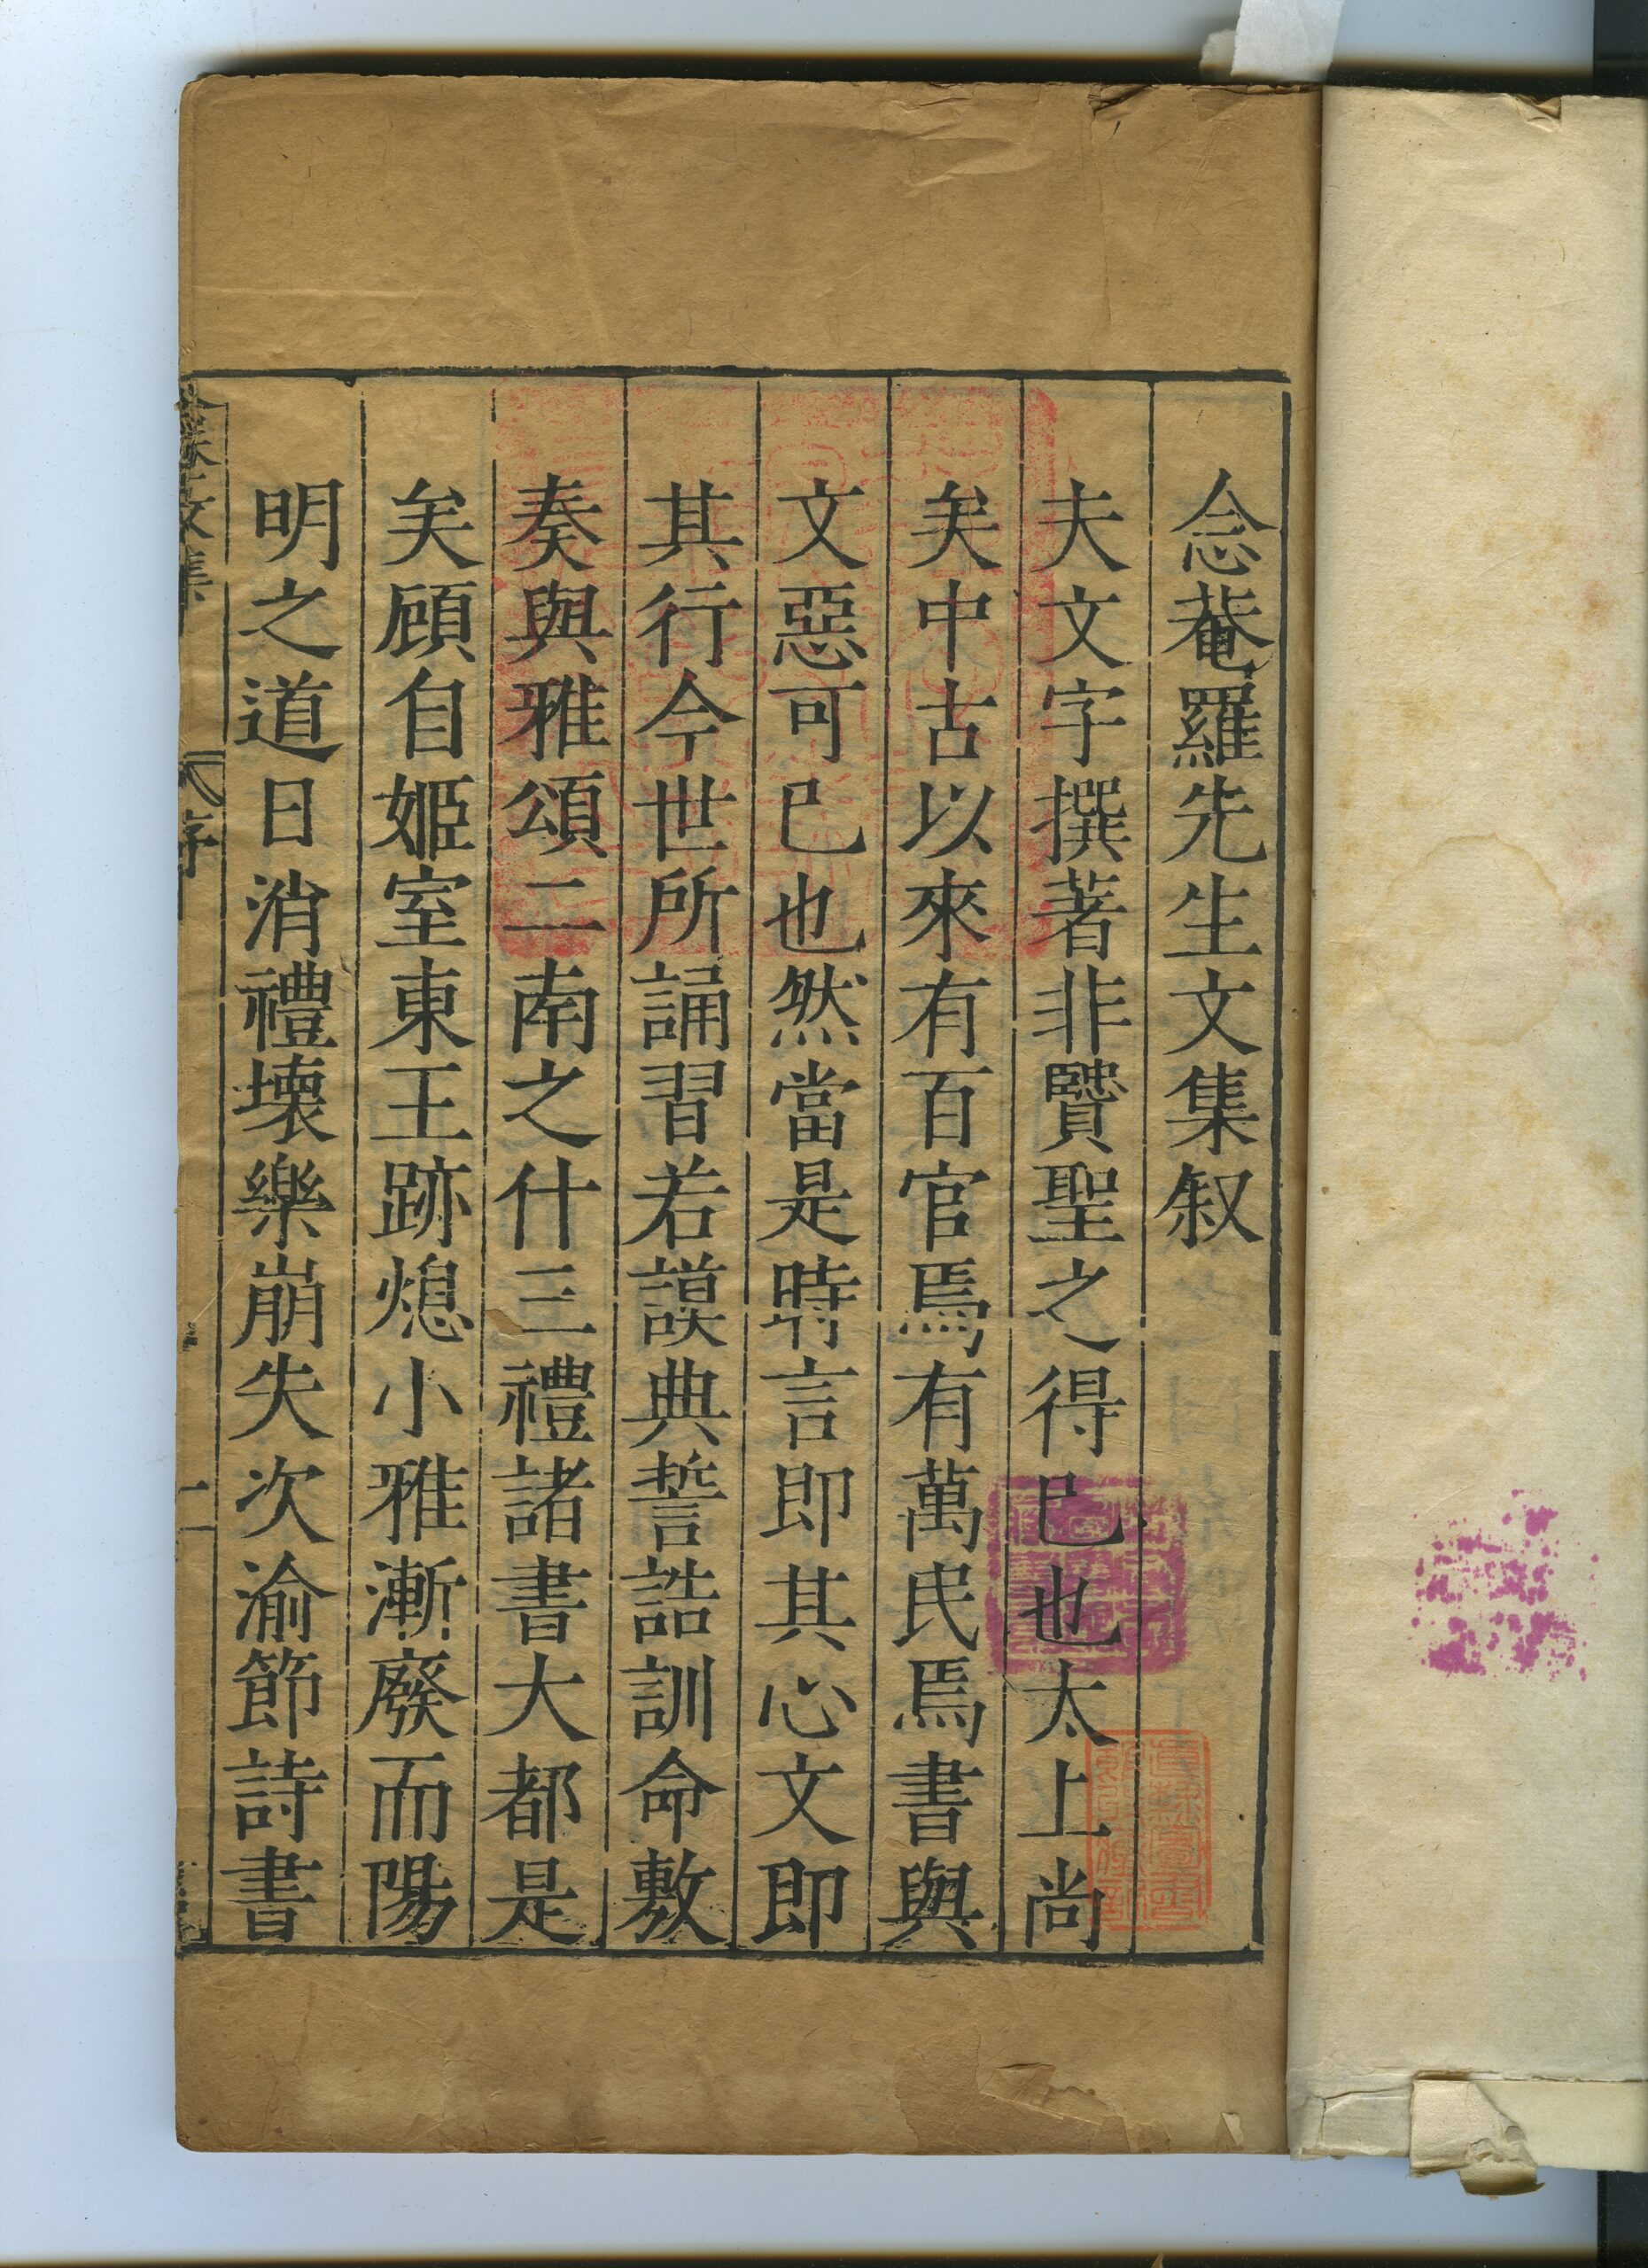 念菴羅先生文集叙
夫文字撰著非賢聖之得已也太上尚
矣中古以來有百官焉有萬民焉書與
文惡可已也然當是時言即其心文即
其行今世所誦習若謨典誓誥訓命敷
奏與雅頌二南之什三禮諸書大都是
矣顧自姬室東王跡熄小雅漸廢而陽
明之道日消禮壞樂崩失次渝節詩書
文集
序